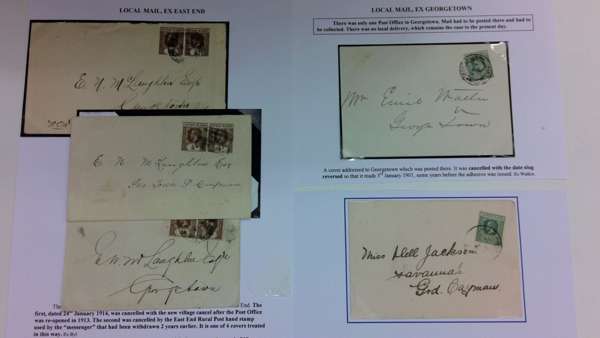 LOCAL MAIL, EX EAST END
E. N. McLaughlin Esqre
Georgetown
E. N. McLaughlin Esq
Geo. Town, Gd Cayman
E. N. McLaughlin Esqre
Georgetown
The
End. The
first, dated 24th January 1914, was cancelled with the new village cancel after the Post Office
was re-opened in 1913. The second was cancelled by the East End Rural Post hand stamp
used by the "messenger" that had been withdrawn 2 years earlier. It is one of 4 covers treated
in this way. Ex Byl
LOCAL MAIL, EX GEORGETOWN
There was only one Post Office in Georgetown. Mail had to be posted there and had to
be collected. There was no local delivery, which remains the case to the present day.
Mrs
George Town
A cover addressed to Georgetown which was posted there. It was cancelled with the date slug
reversed so that it made 5th January 1901, some years before the adhesive was issued. Ex Watkin.
Miss Dell Jackson
Savannah
Grd. Cayman